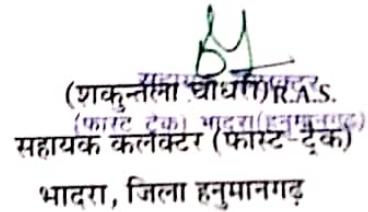 (शकुन्तला चौधरी)R.A.S.
(फास्ट ट्रेक) भादरा(हनुमानगढ़)
सहायक कलेक्टर (फास्ट-ट्रैक)
भादरा, जिला हनुमानगढ़